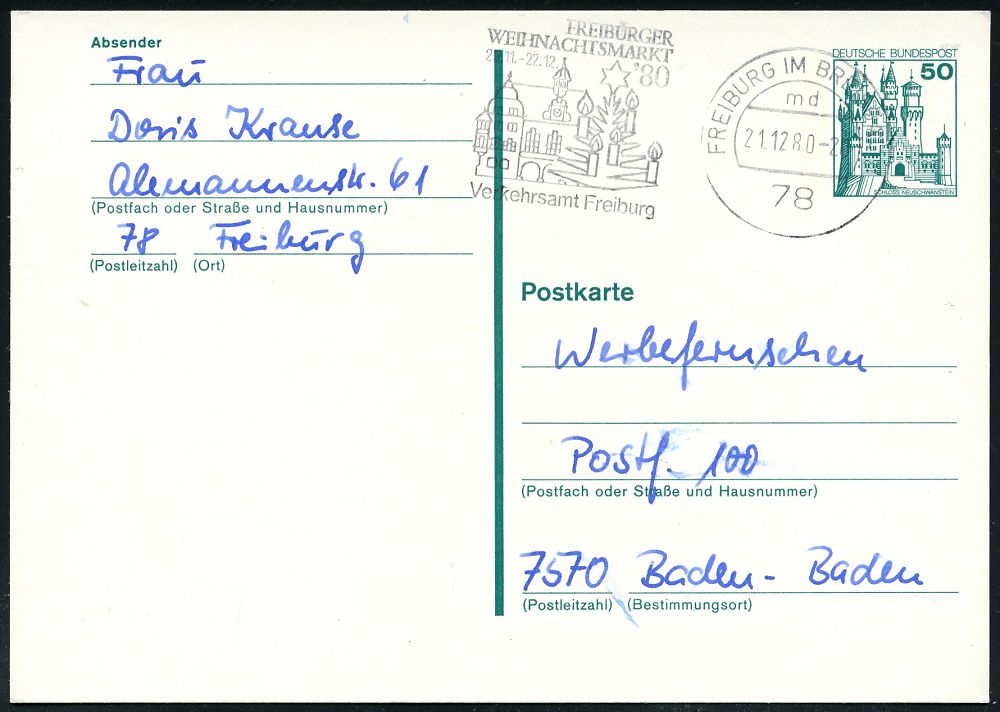 Absender
Frau
Doris Krause
Alemannenstr. 61
(Postfach oder Straße und Hausnummer)
78 Freiburg
(Postleitzahl) (Ort)
FREIBURGER
WEIHNACHTSMARKT
11.-22.12. '80
Verkehrsamt Freiburg
FREIBURG IM
md
21.12.80
78
DEUTSCHE BUNDESPOST
50
SCHLOSS NEUSCHWANSTEIN
Postkarte
Werbefernsehen
Postf. 100
(Postfach oder Straße und Hausnummer)
7570 Baden-Baden
(Postleitzahl) (Bestimmungsort)